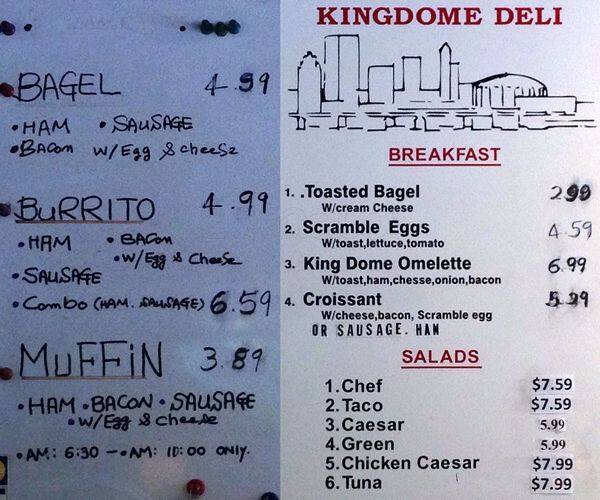 BAGEL 4.99
•HAM •SAUSAGE
•BACON W/Egg & cheese
BURRITO 4.99
•HAM •BACON
•W/Egg & Cheese
•SAUSAGE
•Combo (HAM. SAUSAGE) 6.59
MUFFiN 3.89
•HAM •BACON •SAUSAGE
•W/Egg & cheese
•AM: 6:30 —•AM: 10:00 ONLY.
KINGDOME DELI
BREAKFAST
1. .Toasted Bagel 2.99
W/cream Cheese
2. Scramble Eggs 4.59
W/toast,lettuce,tomato
3. King Dome Omelette 6.99
W/toast,ham,chesse,onion,bacon
4. Croissant
W/cheese,bacon, Scramble egg
OR SAUSAGE. HAM
SALADS
1.Chef $7.59
2.Taco $7.59
3.Caesar 5.99
4.Green 5.99
5.Chicken Caesar $7.99
6.Tuna $7.99